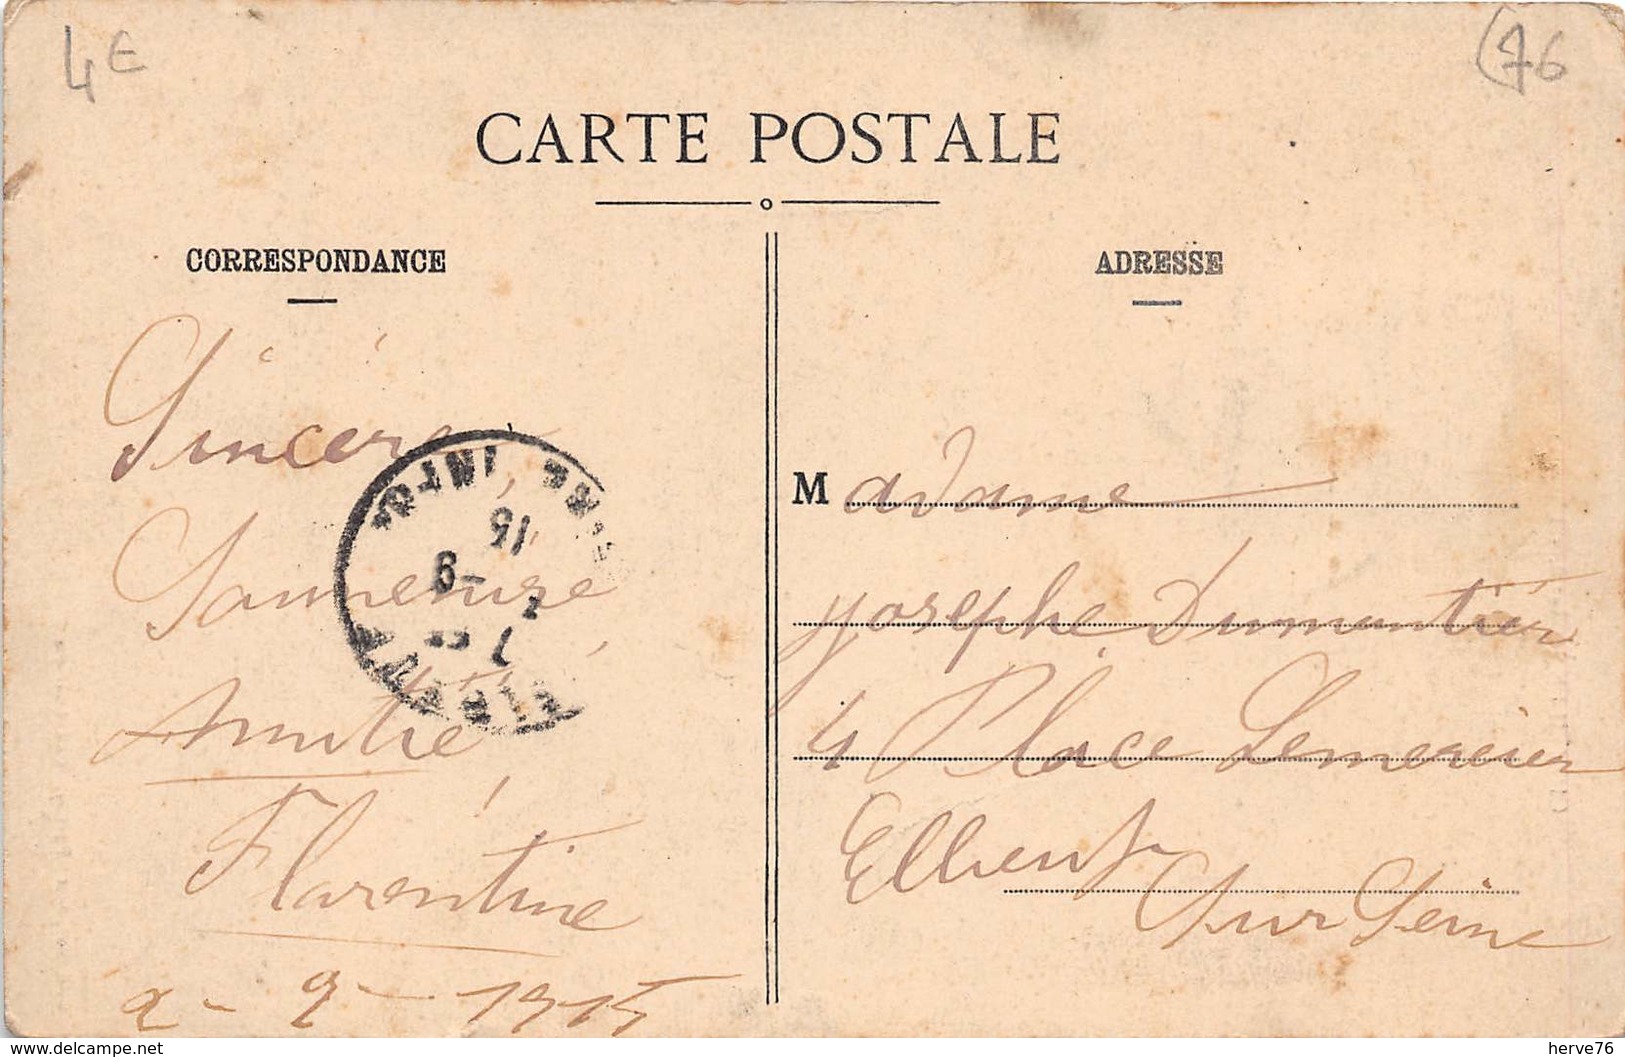 4€
(76
CARTE POSTALE
CORRESPONDANCE
ADRESSE
Sincère
Amitié
Florentine
2 - 9 - 1915
Madame
Josephe Dumontier
4 Place Lemercier
Elbeuf
Sur Seine
SEINE INFRE
15
7 - 9
ELBEUF
www.delcampe.net
herve76